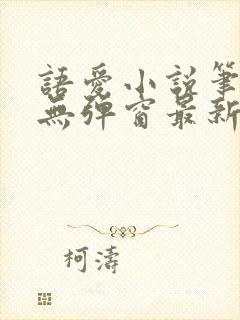 語愛小說筆
無彈窗最新
柯濤